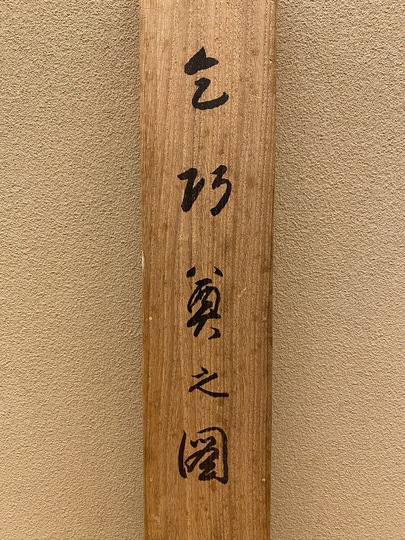 乞巧奠之図